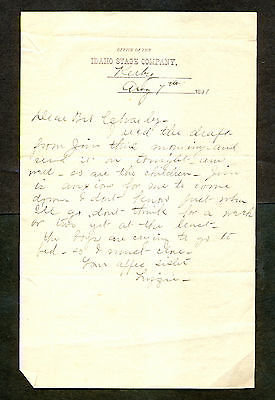 OFFICE OF THE
IDAHO STAGE COMPANY,
Kirby
Aug 7th 1881
Dear Mrs
recd the draft
from Jim this morning and
send it on tonight am
well as are the children Jim
is anxious for me to come
down I dont know just when
I'll go dont think for a week
or two yet at the least
The boys are crying to go to
bed so I must close
Your affec sister
Lizzie